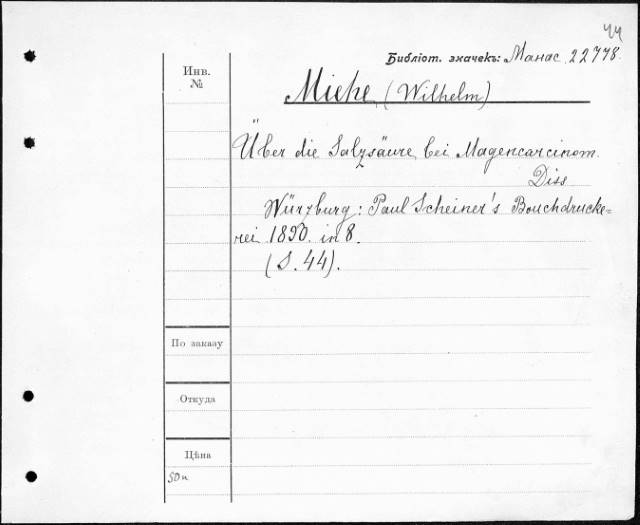 44
Библіот. значекъ: Манас. 22778.
Инв.
№
Miehe (Wilhelm)
Über die Salzsäure bei Magencarcinom.
Diss
Würzburg: Paul Scheiner's Bouchdrucke=
rei 1890. in 8.
(S. 44).
По заказу
Откуда
Цѣна
50 к